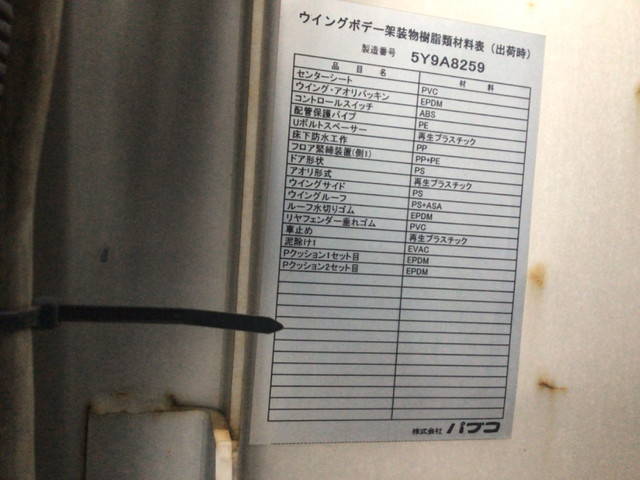 ウイングボデー架装物樹脂類材料表（出荷時）
製造番号 5Y9A8259
品目名 材料
センターシート PVC
ウイング・アオリパッキン EPDM
コントロールスイッチ ABS
配管保護パイプ PE
Uボルトスペーサー 再生プラスチック
床下防水工作 PP
フロア緊締装置(側1) PP+PE
ドア形状 PS
アオリ形式 再生プラスチック
ウイングサイド PS
ウイングルーフ PS+ASA
ルーフ水切りゴム EPDM
リヤフェンダー垂れゴム PVC
車止め 再生プラスチック
泥除け1 EVAC
Pクッション1セット目 EPDM
Pクッション2セット目 EPDM
株式会社 パブコ